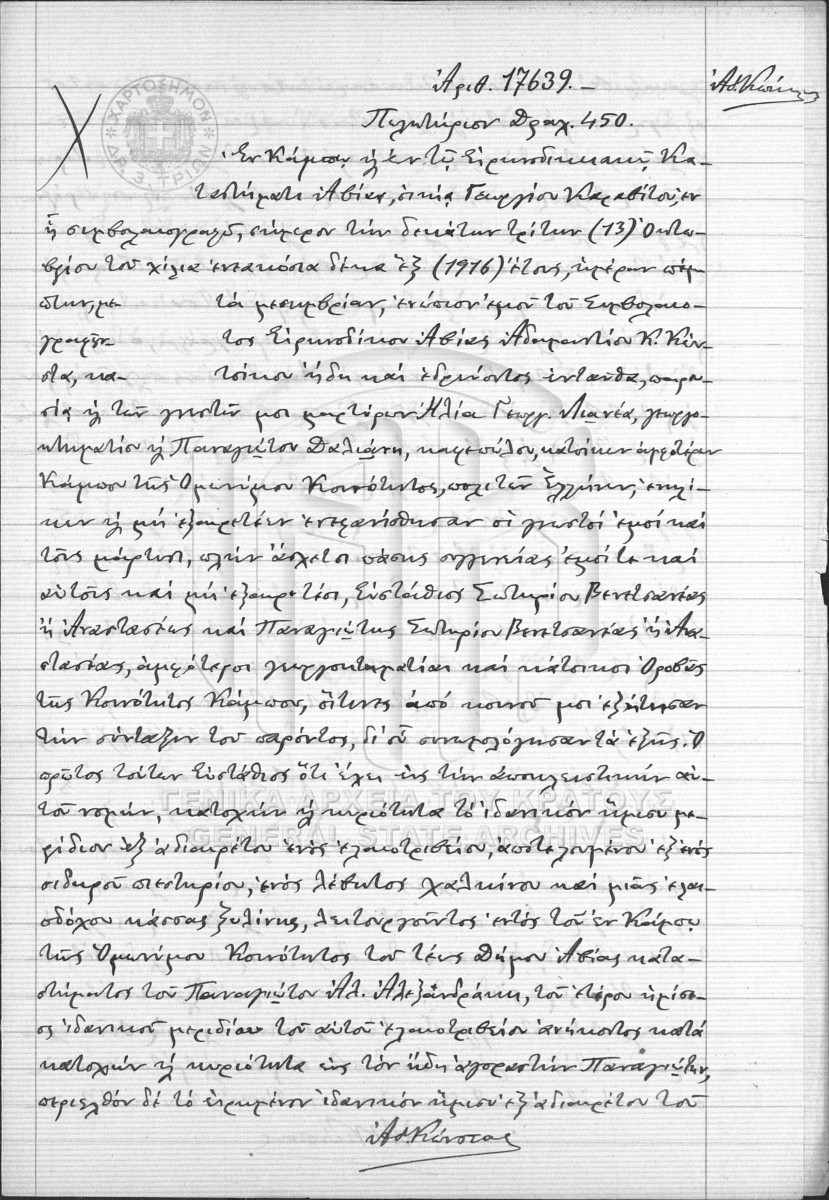 Ἀριθ. 17639.-
Ἀδ. Κώνστας
ΧΑΡΤΟΣΗΜΟΝ
ΔΡ. 3 ΤΡΙΩΝ
Πωλητήριον Δραχ. 450.
Ἐν Κάμπῳ ἤ ἐν τῷ Εἰρηνοδικειακῷ Κα-
ταστήματι Ἀβίας, οἰκίᾳ Γεωργίου Καραβίτου, ἐν
ᾗ συμβολαιογραφῶ, σήμερον τήν δεκάτην τρίτην (13) Ὀκτω-
βρίου τοῦ χίλια ἐννεακόσια δέκα ἕξ (1916) ἔτους, ἡμέραν πέμ-
πτην, με- τά μεσημβρίαν, ἐνώπιον ἐμοῦ τοῦ Συμβολαιο-
γραφοῦν- τος Εἰρηνοδίκου Ἀβίας Ἀδαμαντίου Κ. Κών-
στα, κα- τοίκου ἤδη καί ἑδρεύοντος ἐνταῦθα, παρου-
σίᾳ ἤ τῶν γνωστῶν μοι μαρτύρων Ἠλία Γεωργ. Λιανέα, γεωργο-
κτηματίου ἤ Παναγιώτου Δαλιάνη, καφεπώλου, κατοίκων ἀμφοτέρων
Κάμπου τῆς Ὁμωνύμου Κοινότητος, πολιτῶν Ἑλλήνων, ἐνηλί-
κων ἤ μή ἐξαιρετέων ἐνεφανίσθησαν οἱ γνωστοί ἐμοί καί
τοῖς μάρτυσι, πλήν ἄσχετοι πάσης συγγενείας ἐμοί τε καί
αὐτοῖς καί μή ἐξαιρετέοι, Εὐστάθιος Σωτηρίου Βενετσανέας
ἤ Ἀναστασέας καί Παναγιώτης Σωτηρίου Βενετσανέας ἤ Ἀνα-
στασέας, ἀμφότεροι γεωργοκτηματίαι καί κάτοικοι Ὀροβᾶς
τῆς Κοινότητος Κάμπου, οἵτινες ἀπό κοινοῦ μοι ἐξῄτησαν
τήν σύνταξιν τοῦ παρόντος, δι' οὗ συνωμολόγησαν τά ἑξῆς. Ὁ
πρῶτος τούτων Εὐστάθιος ὅτι ἔχει εἰς τήν ἀποκλειστικήν αὐ-
τοῦ νομήν, κατοχήν ἤ κυριότητα τό ἰδανικόν ἥμισυ με-
ρίδιον ἐξ ἀδιαιρέτου ἑνός ἐλαιοτριβείου, ἀποτελουμένου ἐξ ἑνός
σιδηροῦ πιεστηρίου, ἑνός λέβητος χαλκίνου καί μιᾶς ἐλαι-
οδόχου κάσσας ξυλίνης, λειτουργοῦντος ἐντός τοῦ ἐν Κάμπῳ
τῆς Ὁμωνύμου Κοινότητος τοῦ τέως Δήμου Ἀβίας κατα-
στήματος τοῦ Παναγιώτου Ἀλ. Ἀλεξανδράκη, τοῦ ἑτέρου ἡμίσε-
ος ἰδανικοῦ μεριδίου τοῦ αὐτοῦ ἐλαιοτριβείου ἀνήκοντος κατά
κατοχήν ἤ κυριότητα εἰς τόν ἤδη ἀγοραστήν Παναγιώτην,
περιελθόν δέ τό εἰρημένον ἰδανικόν ἥμισυ ἐξ ἀδιαιρέτου τοῦ
Ἀδ. Κώνστας
ΓΕΝΙΚΑ ΑΡΧΕΙΑ ΤΟΥ ΚΡΑΤΟΥΣ
GENERAL STATE ARCHIVES